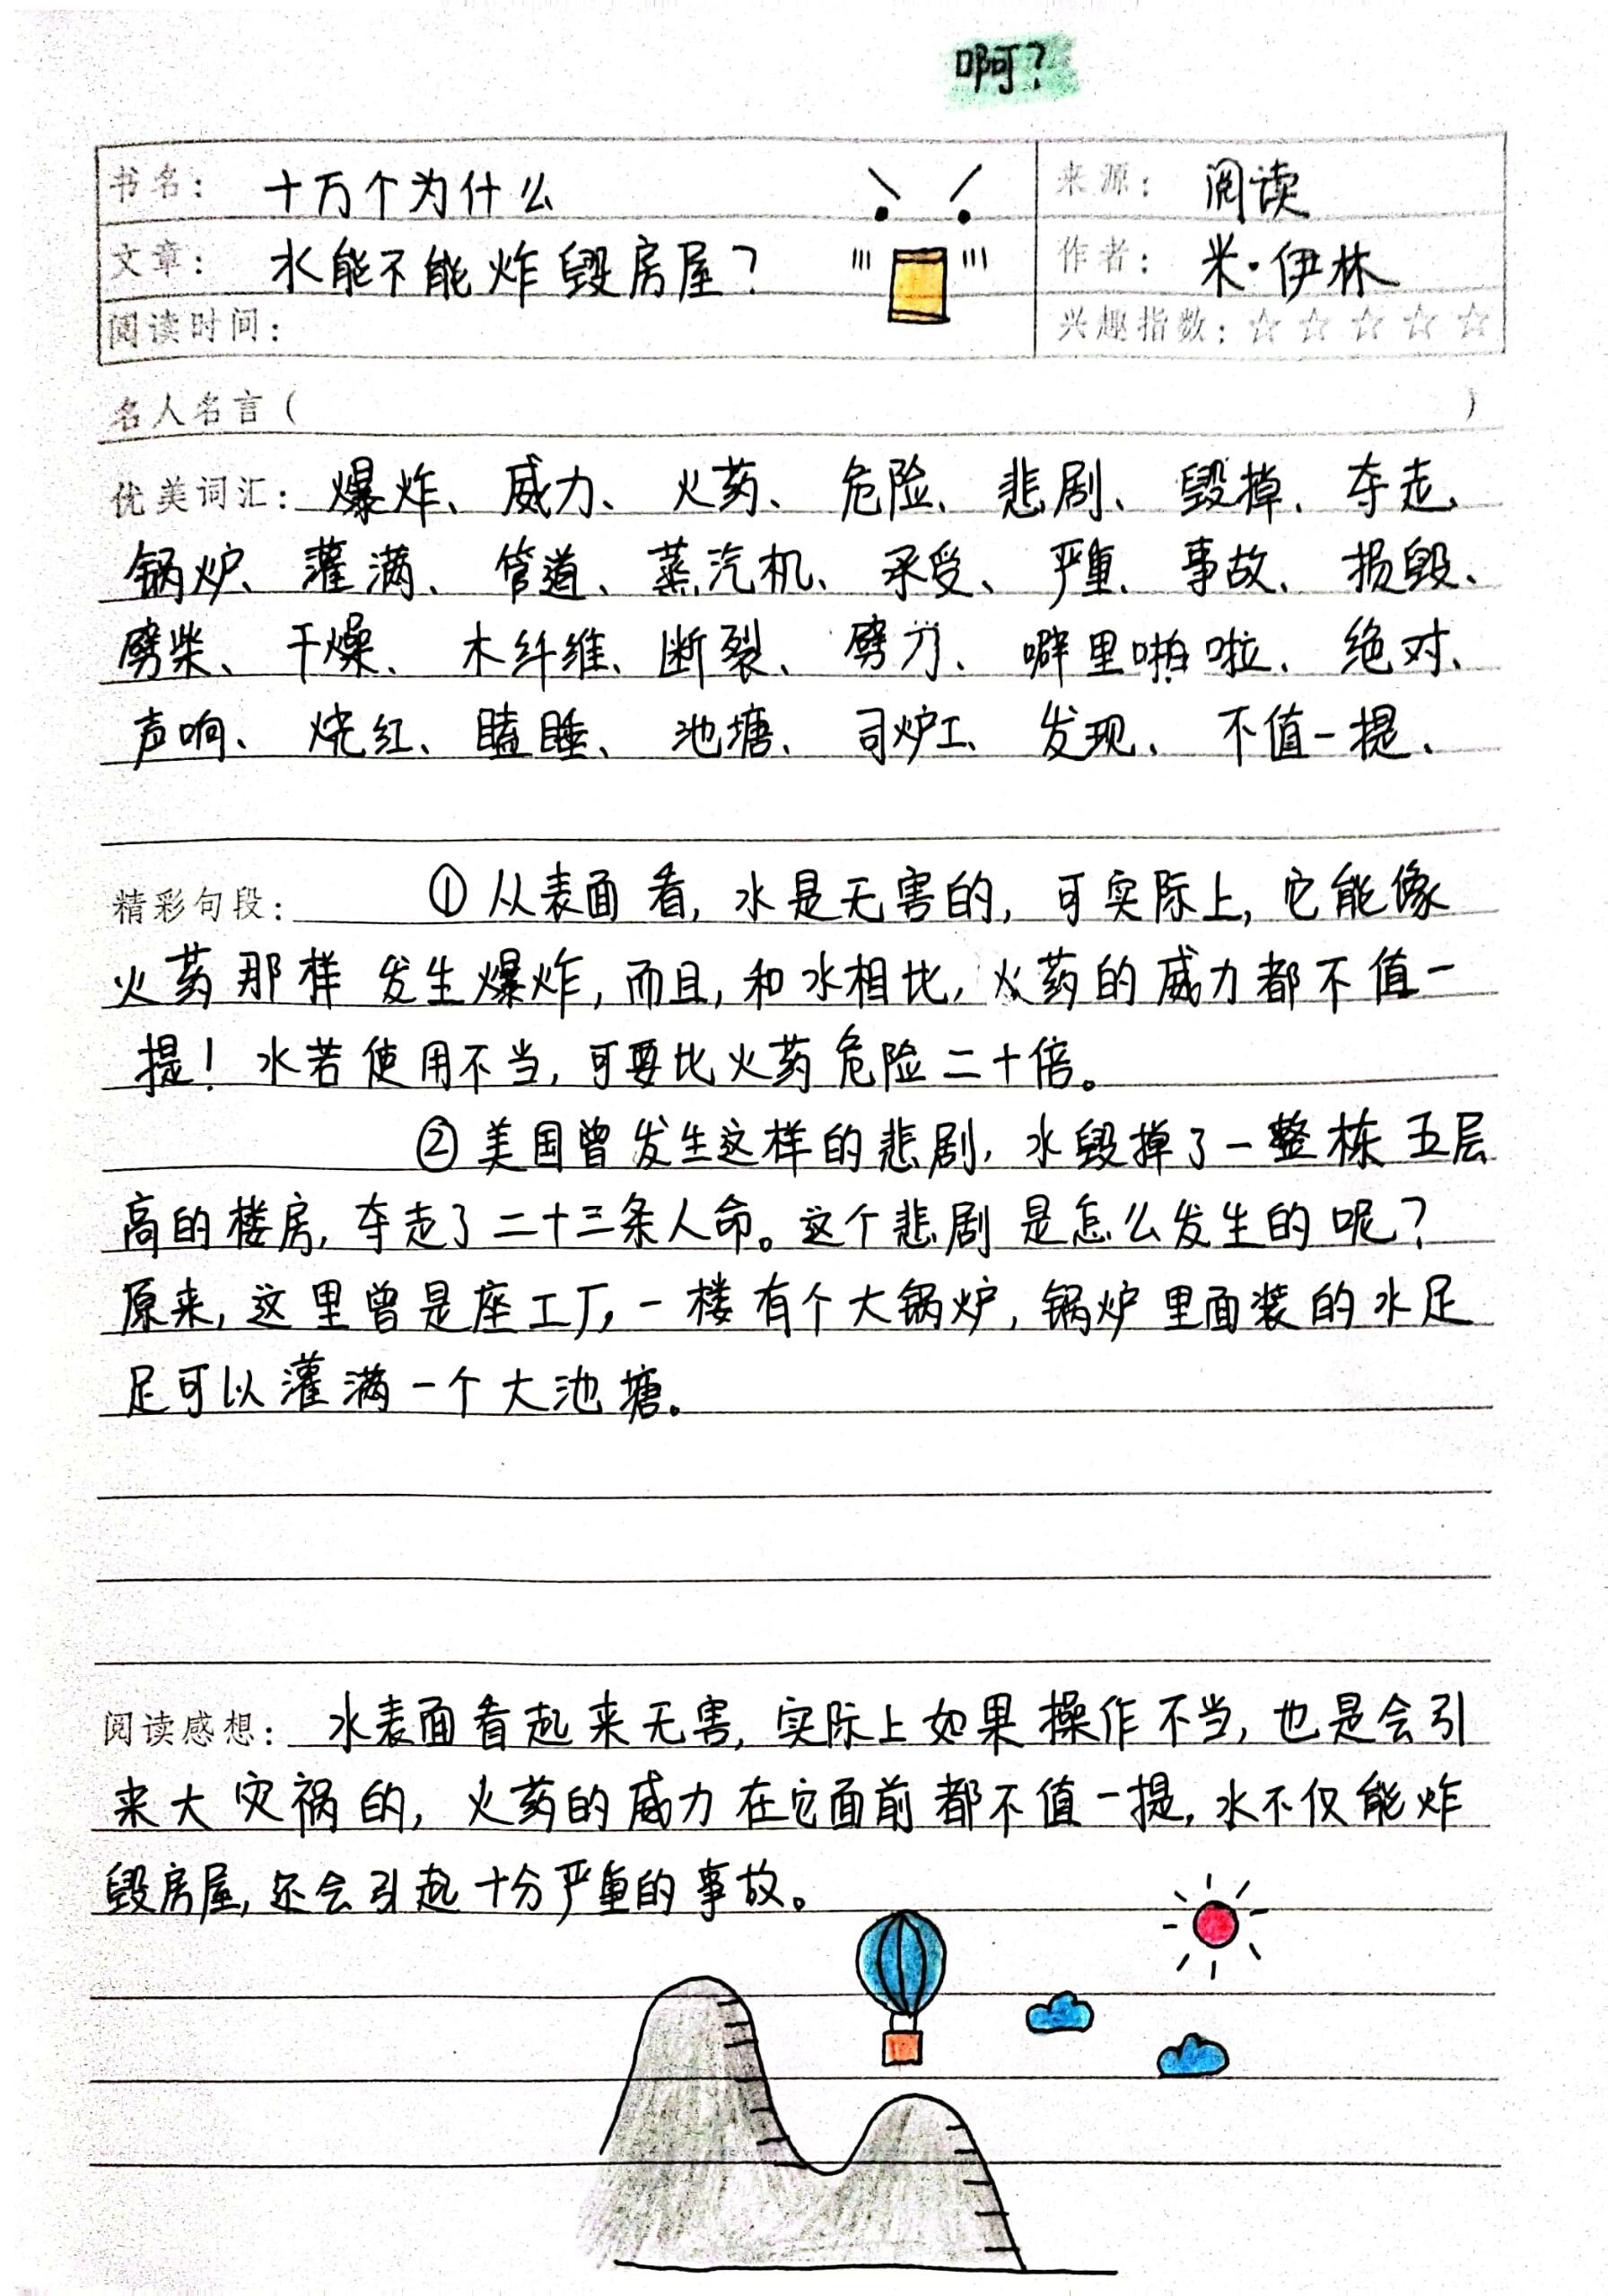 啊?
书名: 十万个为什么
来源: 阅读
文章: 水能不能炸毁房屋?
作者: 米·伊林
阅读时间:
兴趣指数: ☆ ☆ ☆ ☆ ☆
名人名言( )
优美词汇: 爆炸、威力、火药、危险、悲剧、毁掉、夺走、
锅炉、灌满、管道、蒸汽机、承受、严重、事故、损毁、
劈柴、干燥、木纤维、断裂、劈刀、噼里啪啦、绝对、
声响、烧红、瞌睡、池塘、司炉工、发现、不值一提、
精彩句段: ①从表面看,水是无害的,可实际上,它能像
火药那样发生爆炸,而且,和水相比,火药的威力都不值一
提!水若使用不当,可要比火药危险二十倍。
②美国曾发生这样的悲剧,水毁掉了一整栋五层
高的楼房,夺走了二十三条人命。这个悲剧是怎么发生的呢?
原来,这里曾是座工厂,一楼有个大锅炉,锅炉里面装的水足
足可以灌满一个大池塘。
阅读感想: 水表面看起来无害,实际上如果操作不当,也是会引
来大灾祸的,火药的威力在它面前都不值一提,水不仅能炸
毁房屋,还会引起十分严重的事故。